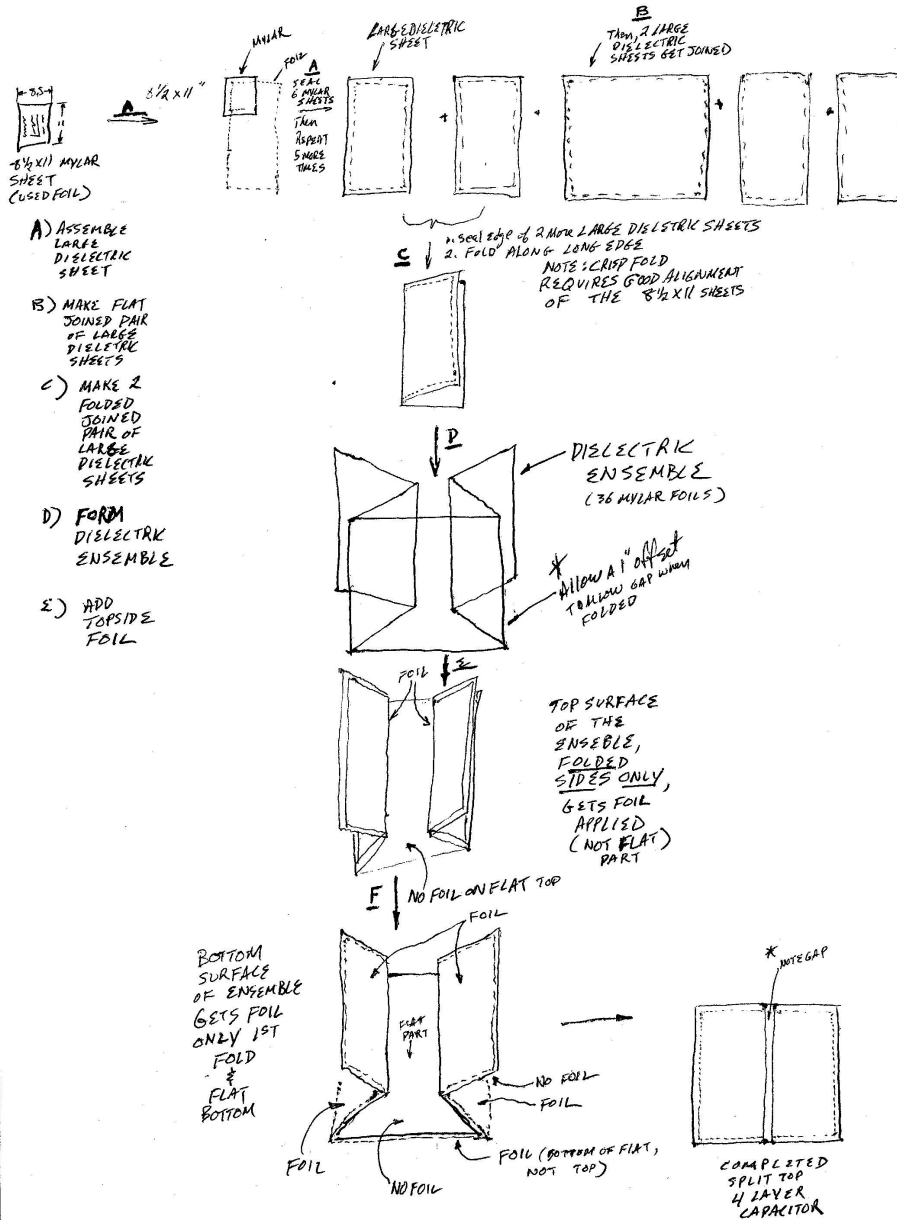 MYLAR
FOIL
8,5
11
A
8 1/2 x 11"
8 1/2 X 11 MYLAR
SHEET
(USED FOIL)
A
SEAL
6 MYLAR
SHEETS
THEN
REPEAT
5 MORE
TIMES
LARGE DIELETRIC
SHEET
+
+
B
THEN, 2 LARGE
DIELECTRIC
SHEETS GET JOINED
+
+
A) ASSEMBLE
LARGE
DIELECTRIC
SHEET
B) MAKE FLAT
JOINED PAIR
OF LARGE
DIELETRK
SHEETS
C) MAKE 2
FOLDED
JOINED
PAIR OF
LARGE
DIELECTRIC
SHEETS
D) FORM
DIELECTRIC
ENSEMBLE
E) ADD
TOPSIDE
FOIL
C
1. Seal edge of 2 More LARGE DIELETRIC SHEETS
2. FOLD ALONG LONG EDGE
NOTE: CRISP FOLD
REQUIRES GOOD ALIGNMENT
OF THE 8 1/2 X 11 SHEETS
D
DIELECTRIC
ENSEMBLE
(36 MYLAR FOILS)
*
Allow A 1" offset
TO ALLOW GAP WHEN
FOLDED
E
FOIL
TOP SURFACE
OF THE
ENSEBLE,
FOLDED
SIDES ONLY,
GETS FOIL
APPLIED
(NOT FLAT)
PART
NO FOIL ON FLAT TOP
F
FOIL
BOTTOM
SURFACE
OF ENSEMBLE
GETS FOIL
ONLY 1ST
FOLD
&
FLAT
BOTTOM
FLAT
PART
NO FOIL
FOIL
FOIL (BOTTOM OF FLAT,
NOT TOP)
FOIL
NO FOIL
*
NOTE GAP
COMPLETED
SPLIT TOP
4 LAYER
CAPACITOR